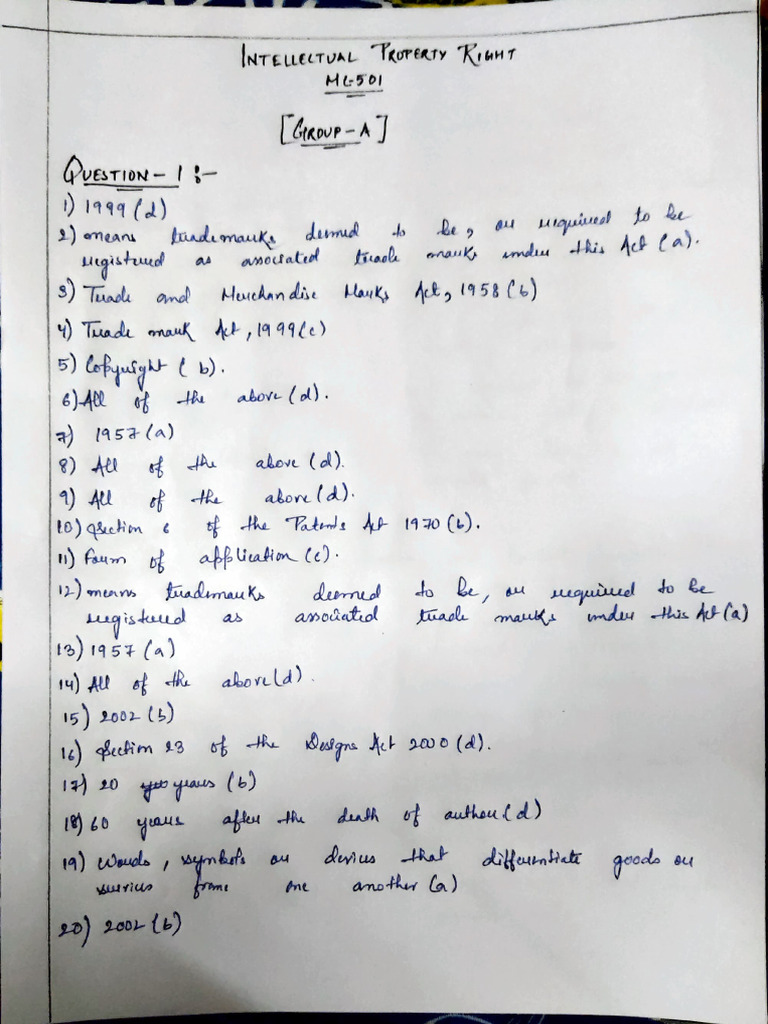 INTELLECTUAL PROPERTY RIGHT
MC-501
[GROUP-A]
QUESTION-1 :-
1) 1999 (d)
2) means trademarks deemed to be, or required to be
registered as associated trade marks under this Act (a).
3) Trade and Merchandise Marks Act, 1958 (b)
4) Trade mark Act, 1999(c)
5) Copyright ( b).
6) All of the above (d).
7) 1957 (a)
8) All of the above (d).
9) All of the above (d).
10) Section 6 of the Patents Act 1970 (b).
11) Form of application (c).
12) means trademarks deemed to be, or required to be
registered as associated trade marks under this Act (a)
13) 1957 (a)
14) All of the above (d).
15) 2002 (b)
16) Section 23 of the Designs Act 2000 (d).
17) 20 years (b)
18) 60 years after the death of author (d)
19) Words, symbols or devices that differentiate goods or
services from one another (a)
20) 2002 (b)